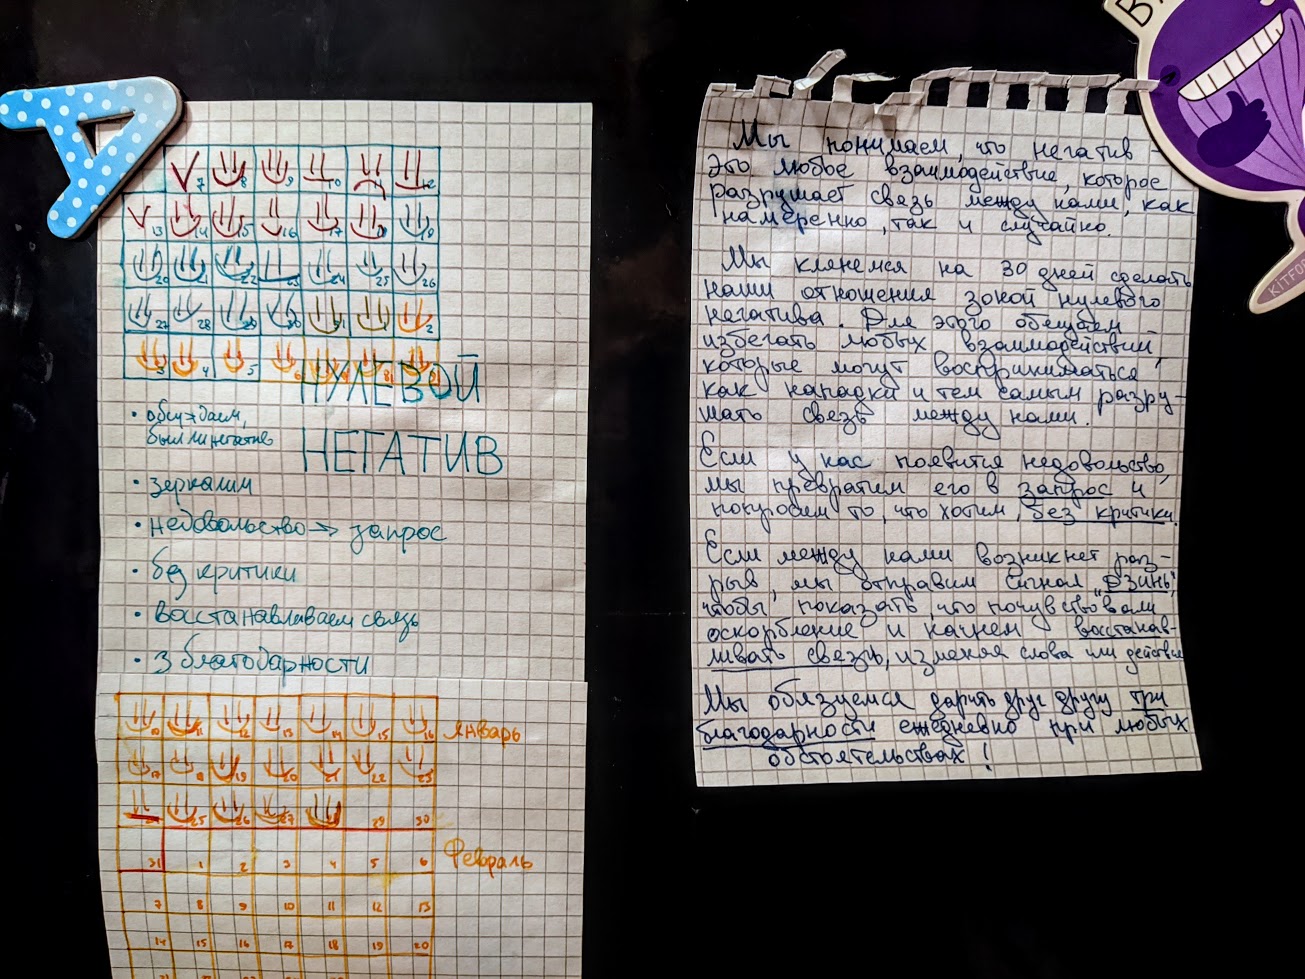 7 8 9 10 12
13 14 15 16 17 18 19
20 21 22 23 24 25 26
27 28 29 30 31 1 2
3 4 5 6 8
НУЛЕВОЙ
НЕГАТИВ
• обсуждаем,
был ли негатив
• зеркалим
• недовольство → запрос
• без критики
• восстанавливаем связь
• 3 благодарности
10 11 12 13 14 15 16 январь
17 18 19 20 21 22 23
25 26 27 29 30
31 1 2 3 4 5 6 Февраль
7 8 9 10 11 12 13
14 15 16 17 18 19 20
Мы понимаем, что негатив –
это любое взаимодействие, которое
разрушает связь между нами, как
намеренно, так и случайно.
Мы клянемся на 30 дней сделать
наши отношения зоной нулевого
негатива. Для этого обещаем
избегать любых взаимодействий,
которые могут восприниматься
как нападки и тем самым разру-
шать связь между нами.
Если у нас появится недовольство,
мы превратим его в запрос и
попросим то, что хотим, без критики.
Если между нами возникнет раз-
рыв, мы отправим сигнал „Дзинь",
чтобы показать, что почувствовали
оскорбление и начнем восстанав-
ливать связь, изменяя слова или действия
Мы обязуемся дарить друг другу три
благодарности ежедневно при любых
обстоятельствах!
KITFOR